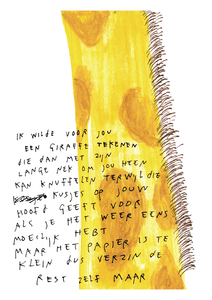 IK WILDE VOOR JOU
EEN GIRAFFE TEKENEN
DIE DAN MET ZIJN
LANGE NEK OM JOU HEEN
KAN KNUFFELEN TERWIJL DIE
KUSJES OP JOUW
HOOFD GEEFT VOOR
ALS JE HET WEER EENS
MOEILIJK HEBT
MAAR HET PAPIER IS TE
KLEIN DUS VERZIN DE
REST ZELF MAAR